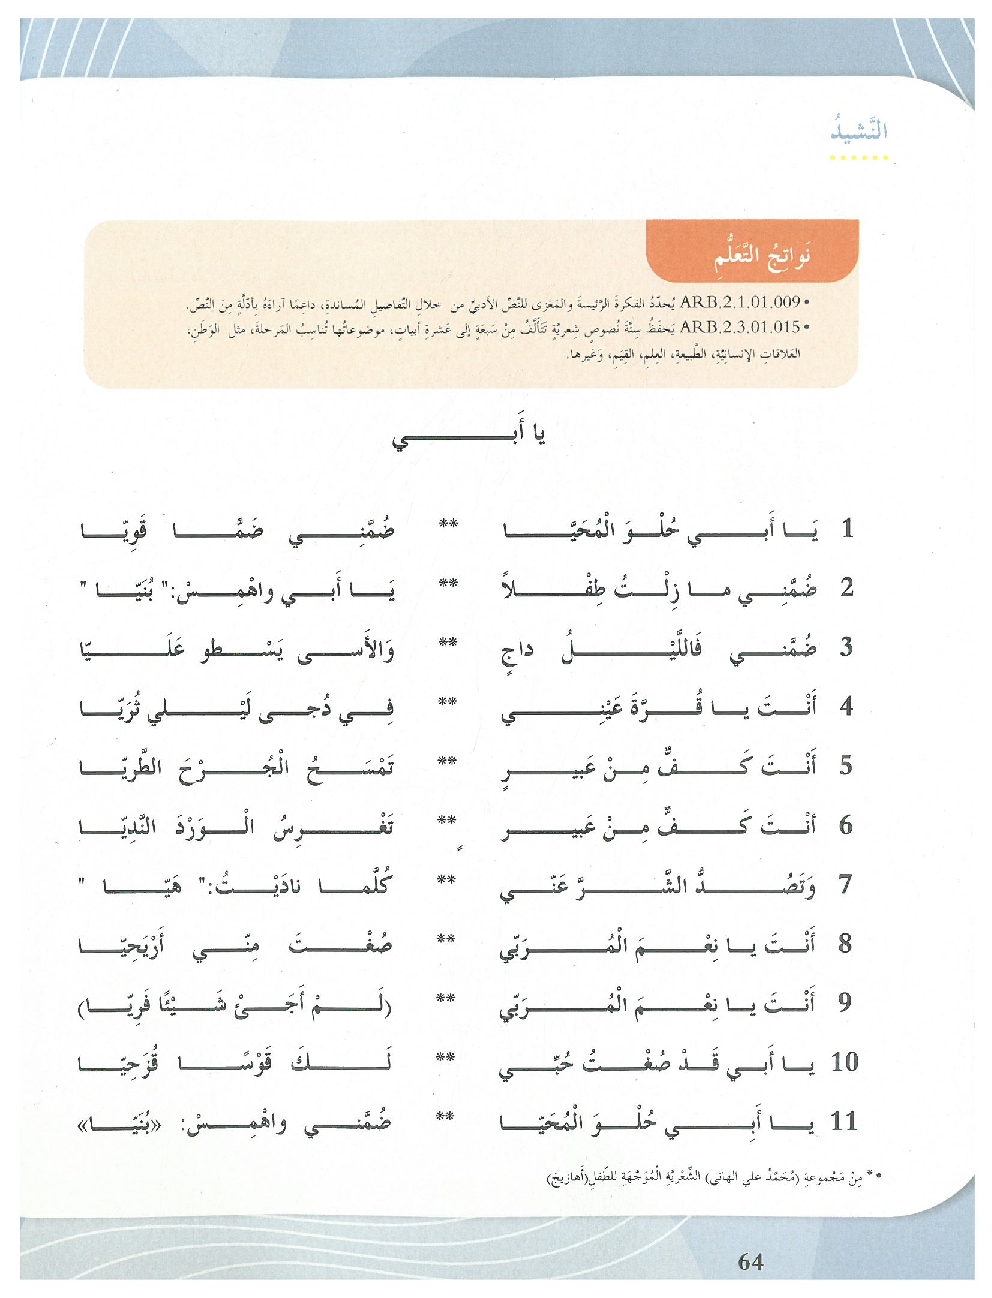 النَّشيدُ
نَواتِجُ التَّعَلُّمِ
• ARB.2.1.01.009 يُحدِّدُ الفكرةَ الرَّئيسةَ والمَغزى للنَّصِّ الأدبيِّ من خلالِ التَّفاصيلِ المُساندةِ، داعِمًا آراءَهُ بِأدلَّةٍ مِنَ النَّصِّ.
• ARB.2.3.01.015 يَحفَظُ سِتَّةَ نُصوصٍ شعريَّةٍ تَتألَّفُ مِنْ سَبعَةِ إلى عَشرةِ أبياتٍ، موضوعاتُها تُناسِبُ المَرحلةَ، مثل الوَطَنِ،
العَلاقاتِ الإنسانيَّةِ، الطَّبيعةِ، العِلمِ، القِيَمِ، وَغيرها.
يا أَبــــــــــي
1 يَــا أَبــــــي حُلْــوَ الْمُحَيَّــــــا ** ضُمَّنِــــــي ضَمًّــــــا قَوِيّــــا
2 ضُمَّنــي مــا زِلْــتُ طِفْــــــلاً ** يَــا أَبــي واهْمِــسْ:" بُنَيّــا "
3 ضُمَّنــي فَاللَّيْــــــلُ داجٍ ** وَالأَســى يَسْــطو عَلَــــــيّا
4 أَنْــتَ يــا قُــرَّةَ عَيْنِــــــي ** فِــي دُجــى لَيْــــلي ثُرَيّــا
5 أَنْــتَ كَــــــفٌّ مِــنْ عَبيــــــرٍ ** تَمْسَــــحُ الْجُــــرْحَ الطَّريّــا
6 أنْــتَ كَــــــفٌّ مِــنْ عَبيــــــرٍ ** تَغْــــــرِسُ الْــــوَرْدَ النَّدِيّــا
7 وَتَصُــــــدُّ الشَّــــــرَّ عَنّــي ** كُلَّمــا نادَيْــــتُ:" هَيّــــا "
8 أَنْــتَ يــا نِعْــــمَ الْمُــــــرَبّي ** صُغْــــــتَ مِنّــي أَرْيَحِيّــا
9 أَنْــتَ يــا نِعْــــمَ الْمُــــــرَبّي ** (لَــــمْ أَجِــئْ شَــيْئًا فَرِيّــا)
10 يــا أَبــي قَــدْ صُغْــــتُ حُبّــي ** لَــــــكَ قَوْسًــا قُزَحِيّــا
11 يــا أَبِــــــي حُلْــوَ الْمُحَيّــا ** ضُمَّنــي واهْمِــسْ: «بُنَيّــا»
• * مِنْ مَجْموعةِ (مُحَمَّدُ علي الهاني) الشِّعْرِيَّةِ الْمُوَجَّهَةِ للطِّفلِ(أَهازيجَ)
64